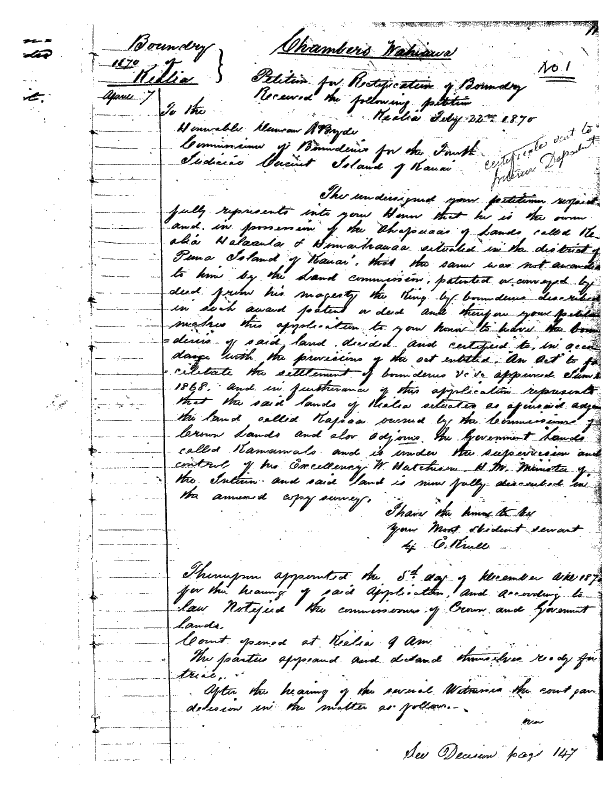 Boundry
of
Kealia
1870
April 7
Chambers Wahiawa
No 1
Petition for Rectification of Boundry
Received the following petition
Kealia Feby 22nd 1870
To the
Honorable Duncan McBryde
Commissioner of Bounderies for the Fourth
Judicial Circuit Island of Kauai
certificate sent to
Interior Department
The undersigned your petition respect
fully represents unto your Honor that he is the owner
and in possession of the Ahapuaas of Lands called Ke
alia Halaula & Homaikawaa situated in the district of
Puna Island of Kauai, that the same was not awarded
to him by the Land commission, patented or conveyed by
deed from his majesty the King by bounderies described
in such award patent or deed and therefore your petitioner
makes this application to your honor to have the boun
deries of said land decided and certified to in accor
dance with the provisions of the act entitled An Act to fa
cilitate the settlement of bounderies &c &c approved June
1868. and in furtherance of this application represents
that the said lands of Kealia situated as aforesaid adjoins
the land called Kapaa owned by the Commissioners of
Crown Lands and also adjoins the Government Lands
called Kamomalo and is under the supervision and
control of his Excellency W Hutchison H. M. Minister of
the Interior and said land is now fully described in
the annexed copy survey.
I have the honor to be
your Most obedient servant
E. Krull
Thereupon appointed the 5th day of December AD 187
for the hearing of said Application, and according to
law Notified the commissioners of Crown and Government
lands.
Court opened at Kealia 9 Am
The parties appeared and declared themselves ready for
trial.
After the hearing of the several Witnesses the court gave
decision in the matter as follows.-
over
See Decision page 147